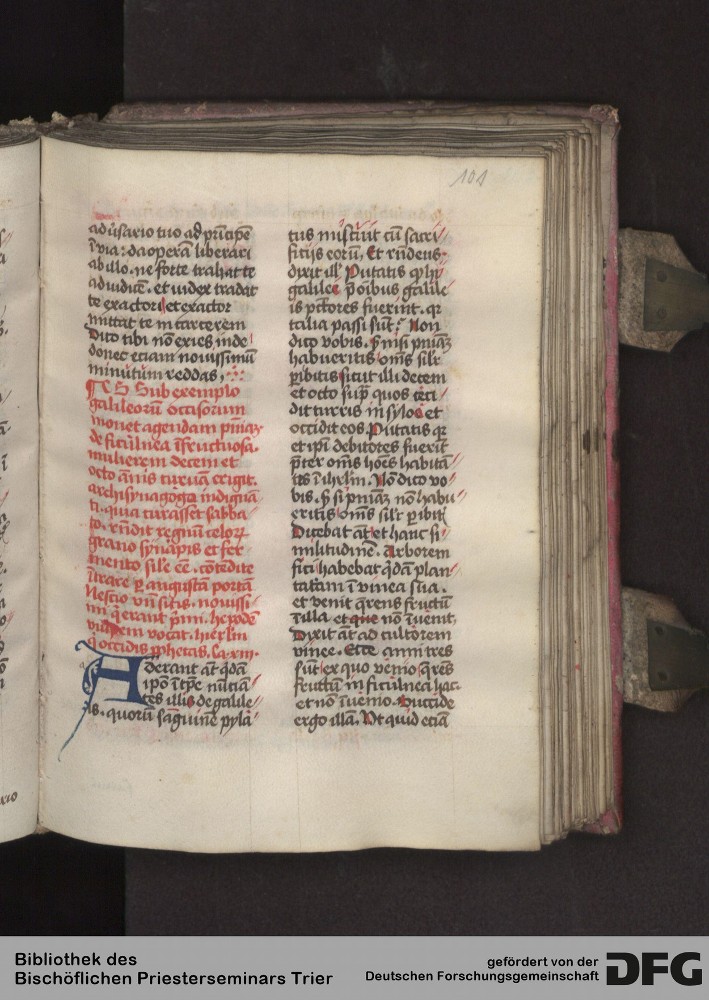 101
adũsario tuo ad pͥncipẽ
ĩ via: da operã liberari
ab illo. ne forte trahat te
ad iudicẽ. et iudex tradat
te exactori et exactor
mittat te in carcerem
Dico tibi nõ exies inde
donec etiam nouissimũ
minutum reddas,
Sub exemplo
galileorũ occisorum
monet agendam pniaʒ
de ficulnea ĩfructuosa.
mulierem decem et
octo annis curuam erigit.
archisynagogꝰ indignã
ti. qua curasset sabba
to. rñdit regnũ celoꝝ
grano synapis et fer
mento sile eẽ. cõtẽdite
ĩtrare ꝑ augustã portã
Nescio vñ sitis. nouissi
mi q̃ erant pͥmi. herodẽ
vulpem vocat. hierlm̃
q̃ occidis ꝓphetas. Ca. xiii.
Aderant aũt q̃dã
ipõ ĩ tꝑe nũciã
tes illi de galile
is. quorũ sãguine pyla
tus miscuit cũ sacri
ficijs eorũ, Et rñdens
dixit ill̃ Putatis ꝙ hij
galilei p̃ oĩbus galile
is pctõres fuerint. qꝛ
talia passi sũt: Non
dico vobis. sꝫ nisi pniaʒ
habueritis om̃s silr
ꝑibitis sicut illi decem
et octo supͣ quos ceci
dit turris in syloe et
occidit eos. Putatis qꝛ
et ipi debitores fuerĩt
p̃ter om̃s hoẽs habitã
tes ĩ ihrlm. Nõ dico vo
bis. sꝫ si pniaʒ nõ habu
eritis om̃s silr ꝑibitis
Dicebat aũt et hanc si
militudinẽ. Arborem
fici habebat q̃dã plan
tatam ĩ vinea sua.
et venit q̃rens fructũ
ĩ illa et nõ ĩuenit,
Dixit aũt ad cultorem
vinee. Ecce anni tres
sũt ex quo venio q̃rẽs
fructũ in ficulnea hac
et nõ ĩuenio. Succide
ergo illã. Vt quid etiã
Bibliothek des
Bischöflichen Priesterseminars Trier
gefördert von der
Deutschen Forschungsgemeinschaft
DFG